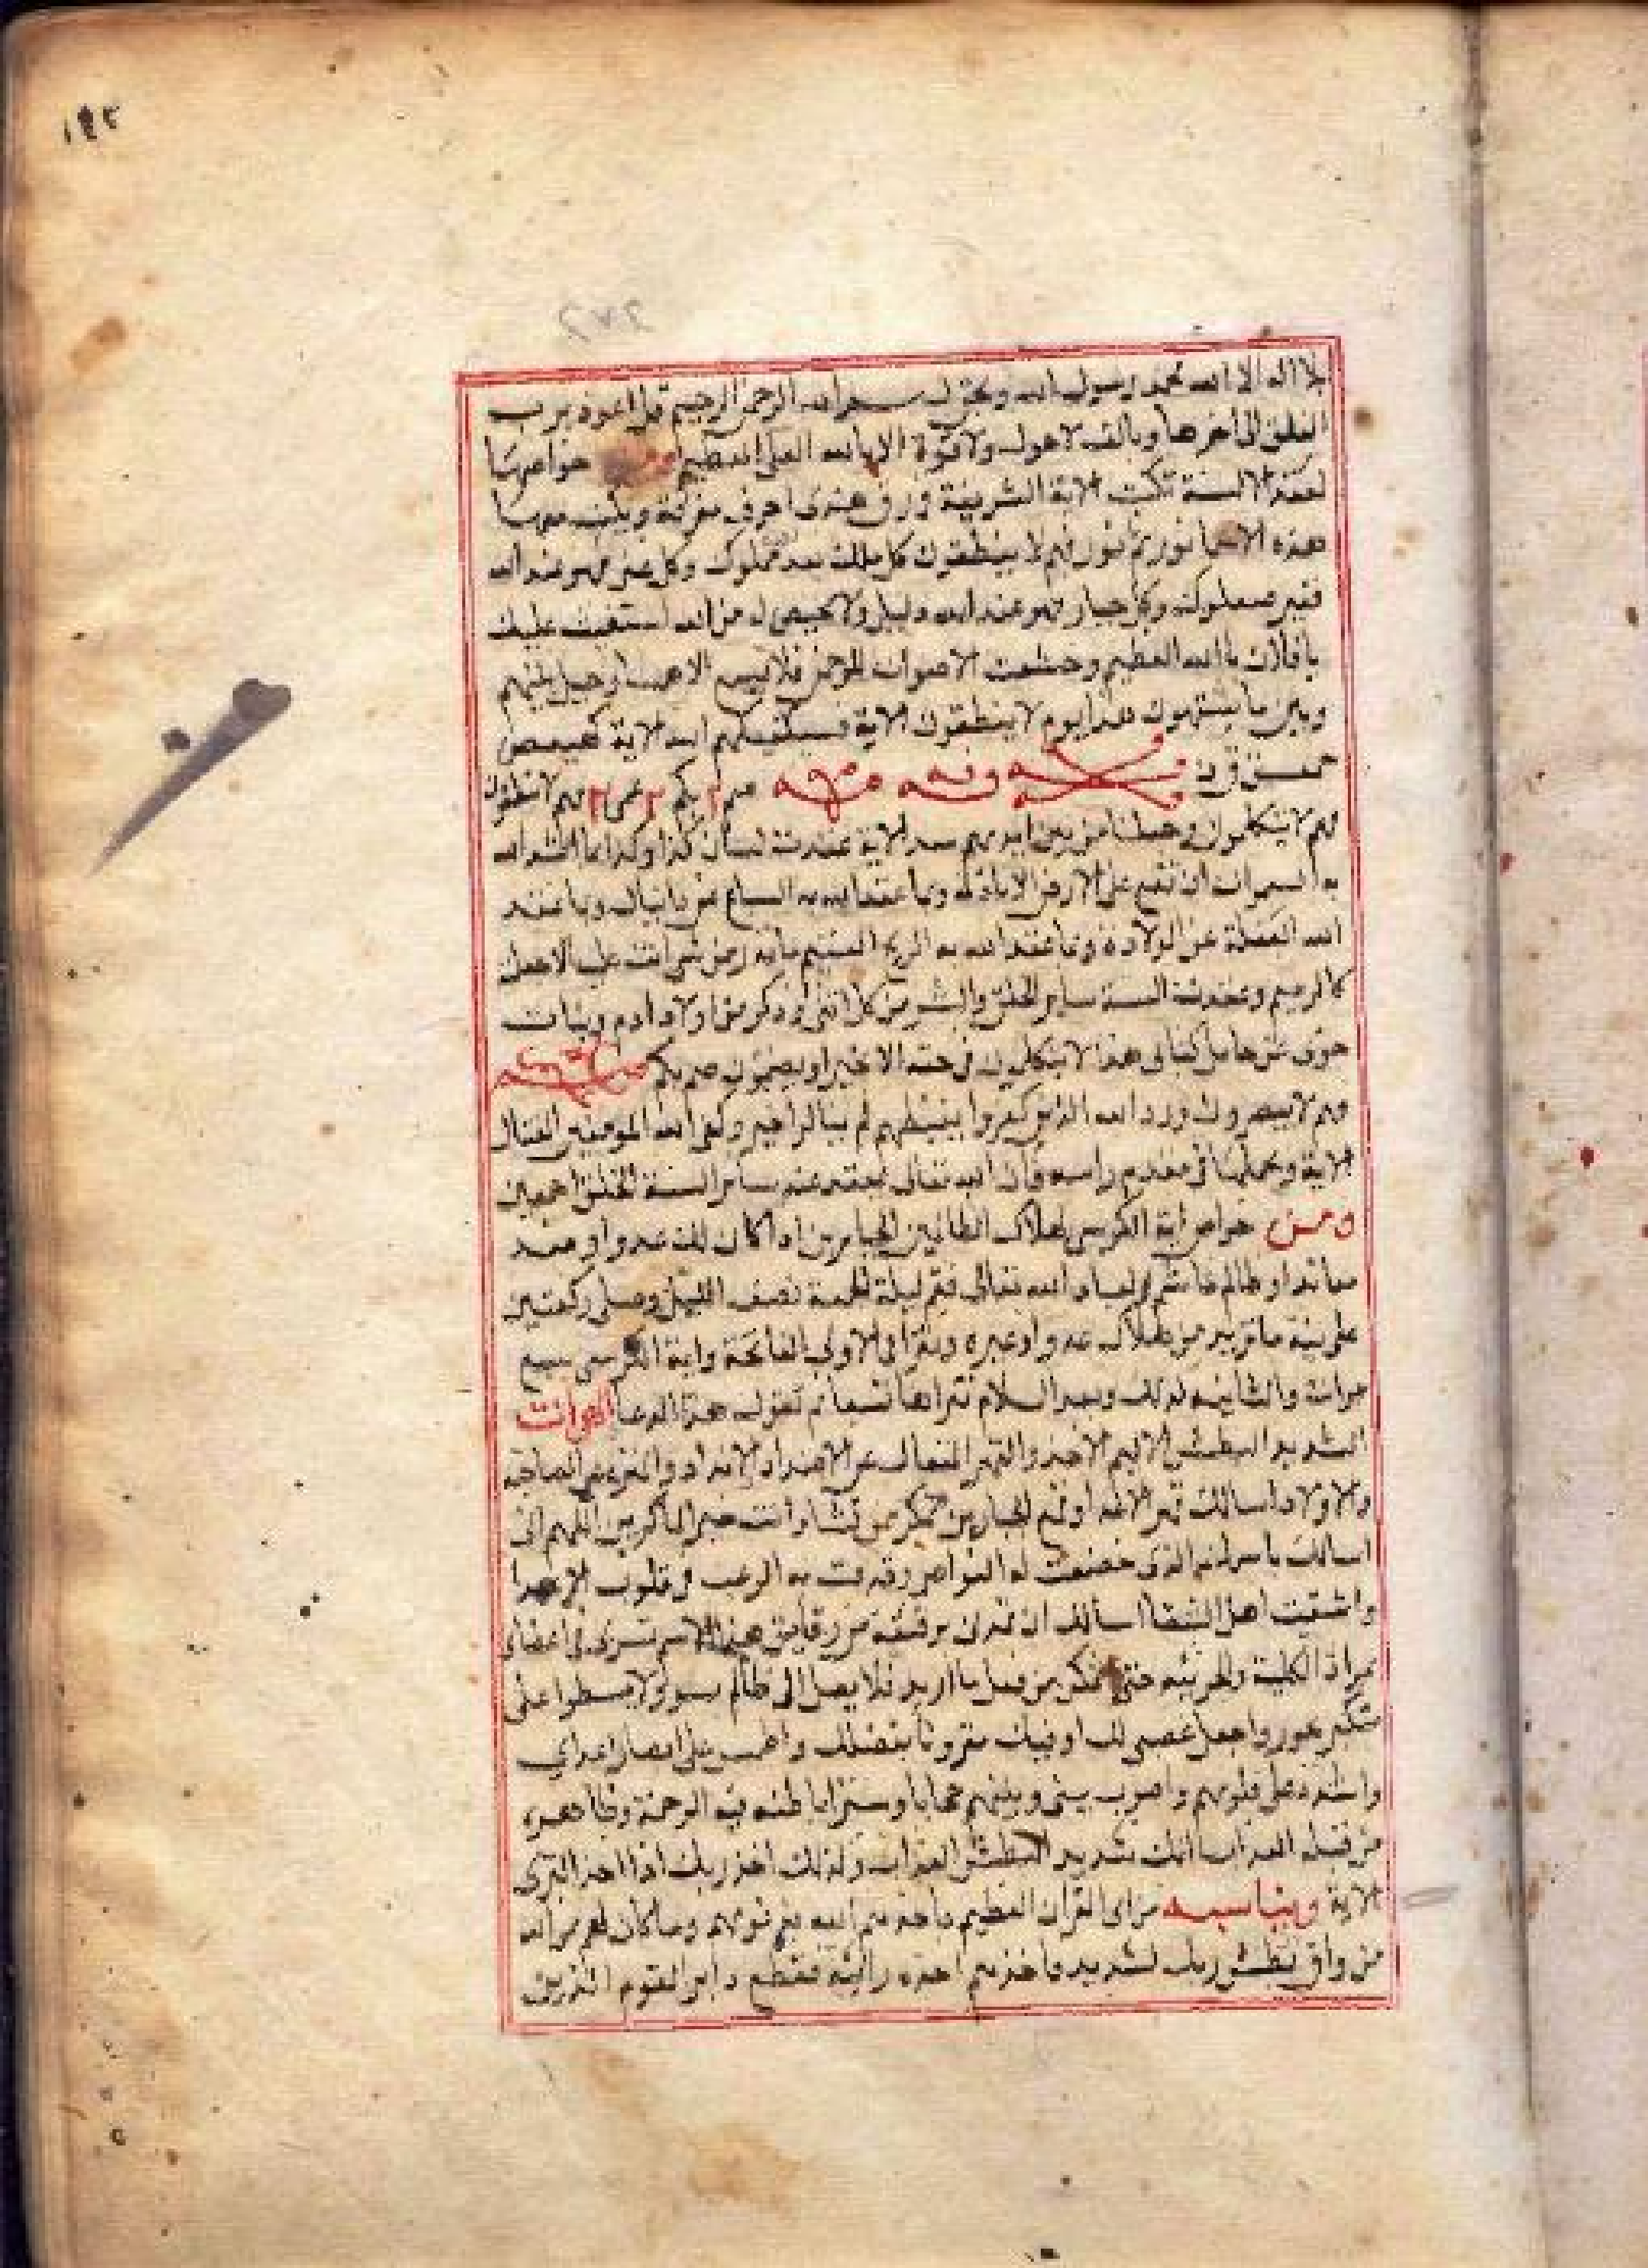 ١٤٢
لا اله الا الله محمد رسول الله وبحق بسم الله الرحمن الرحيم قل اعوذ برب
الفلق الى اخرها وبالف لا حول ولا قوة الا بالله العلي العظيم خواصها
لعقد الالسنة تكتب الاية الشريفة ورق احرف مفرقة ويكتب معها
هذه الاسما فهم لا ينطقون كل ملك مملوك وكل غني فهو عند الله
فقير صعلوك وكل جبار فهو عند الله ذليل ولا محيص له من الله استعنت عليك
يا فلان بالله العظيم وخشعت الاصوات للرحمن فلا تسمع الا همسا وحيل بينهم
وبين ما يشتهون هذا يوم لا ينطقون الاية فسيكفيكهم الله الاية كهيعص
حمعسق ق ن صم بكم عمي فهم لا ينطقون
فهم لا يتكلمون وجعلنا من بين ايديهم سدا الاية عقدت لسان كذا وكذا بما عقد الله
به السموات ان تقع على الارض الا باذنه وبما عقد الله به السباع عن دانيال وبما عقد
الله البغلة عن الولادة وبما عقد الله به الريح العقيم ما تذر من شي اتت عليه الا جعلته
كالرميم وعقدت السنة ساير الخلق والبشر من كل انثى وذكر من اولاد ادم وبنات
حوى عن حامل كتابى هذا لا يتكلمون في حقه الا خيرا او يصمتون صم بكم
وهم لا يبصرون ورد الله الذين كفروا بغيظهم لم ينالوا خيرا وكفى الله المومنين القتال
الاية ويحملها في مقدم راسه فان الله تعالى يعقد عنه ساير السنة الخلق اجمعين
ومن خواص اية الكرسي لهلاك الظالمين الجبارين اذا كان لك عدوا او ضد
معاندا او ظالم غاشم لعباد الله تعالى فقم ليلة الجمعة نصف الليل وصلى ركعتين
على نية ما تريد من هلاك عدوا وغيره وتقرا في الاولى الفاتحة واية الكرسي سبع
مرات والثانية كذلك وبعد السلام تقراها تسعا ثم تقول هذا الدعا اللهم انت
الشديد البطش الاليم الاخذ والقهر المتعال عن الاضداد والانداد والمنزه عن الصاحبة
والاولاد اسالك قهر الاعدا وقمع الجبارين تمكر بمن تشا وانت خير الماكرين اللهم اني
اسالك باسمك الذي خضعت له النواصي وقذفت به الرعب في قلوب الاعدا
واشقيت اهل الشقا اسالك ان تمدني برقيقة من رقايق هذا الاسم تسري في اعضاي
الكلية والجزئية حتى اتمكن من فعل ما اريد فلا يصل الى ظالم بسو ولا يسطوا علي
متكبر بجور واجعل غضبي لك وفيك مقرونا بغضبك واطمس على ابصار اعداي
واشدد على قلوبهم واضرب بيني وبينهم حجابا وسترا باطنه فيه الرحمة وظاهره
من قبله العذاب انك شديد البطش العذاب وكذلك اخذ ربك اذا اخذ القرى
الاية ويناسبه من اي القران العظيم فاخذهم الله بذنوبهم وما كان لهم من الله
من واق بطش ربك لشديد فاخذهم اخذه رابية فقطع دابر القوم الذين